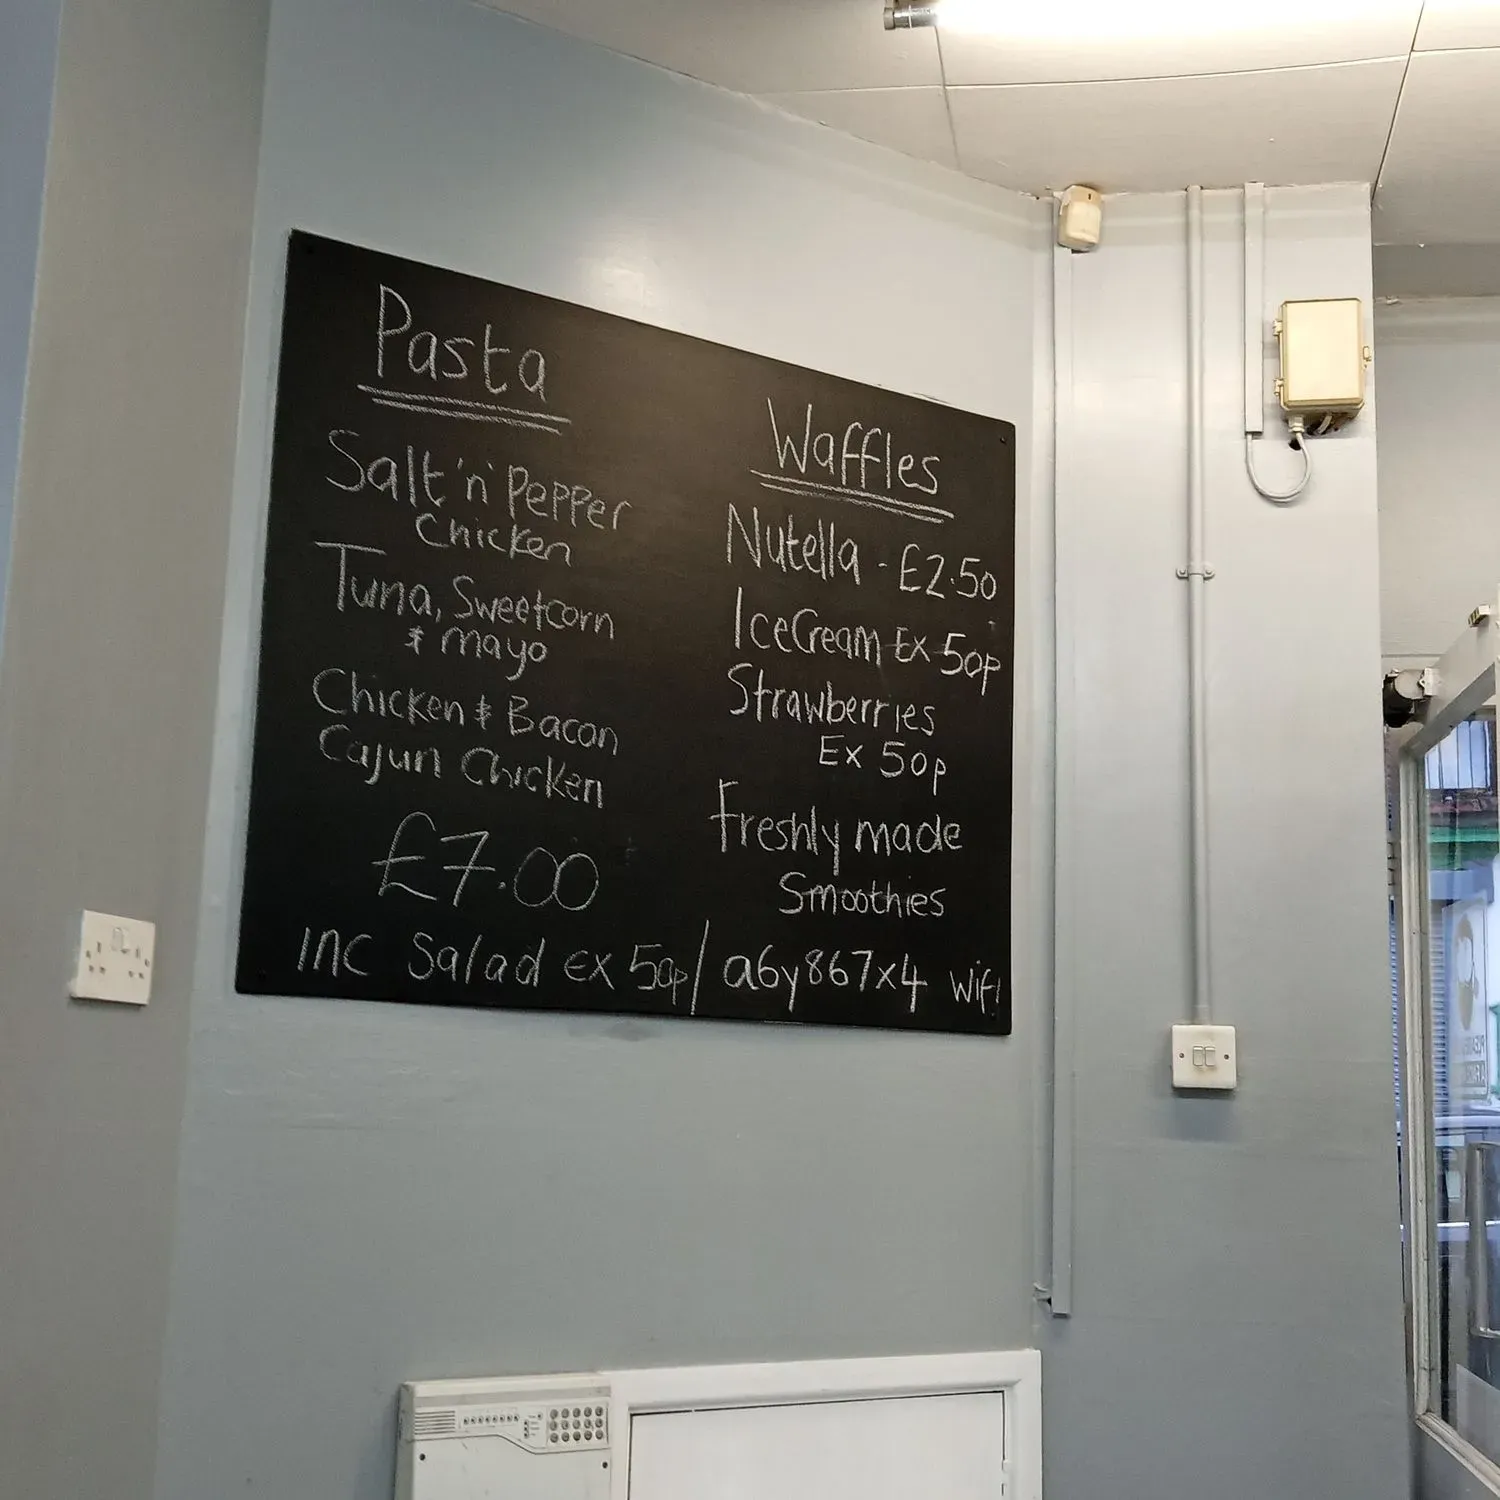 Pasta
Salt 'n' Pepper
Chicken
Tuna, Sweetcorn
& mayo
Chicken & Bacon
Cajun Chicken
£7.00
inc Salad ex 50p/
Waffles
Nutella - £2.50
IceCream Ex 50p
Strawberries
Ex 50p
Freshly made
Smoothies
a6y867x4 wifi